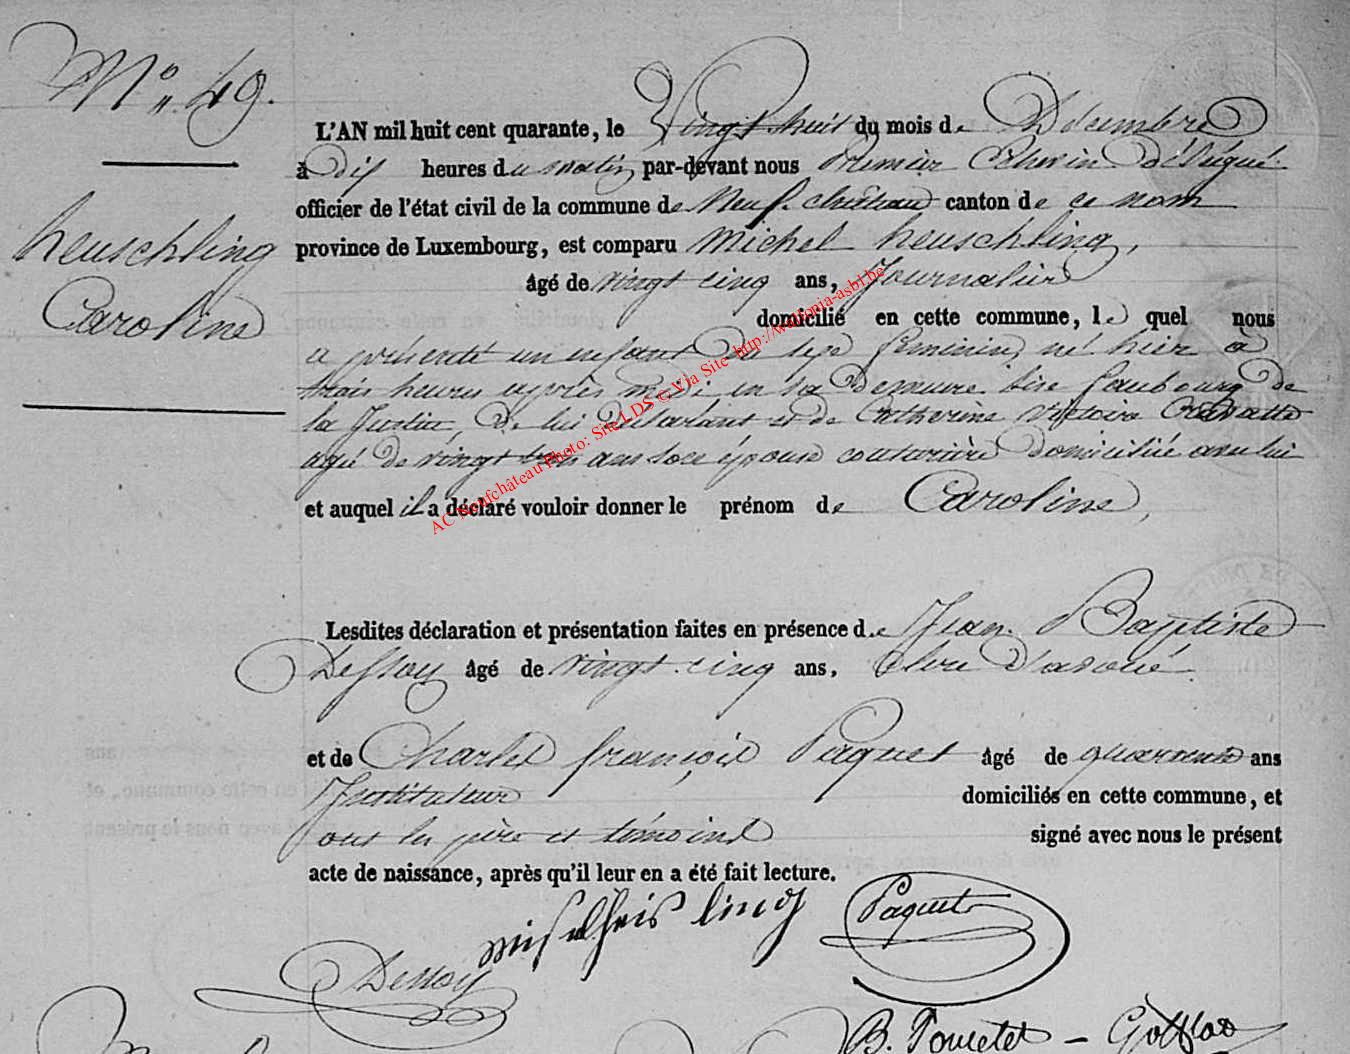 N° 49.
Heuschling
Caroline
L'AN mil huit cent quarante, le Vingt huit du mois de Décembre
à dix heures du matin, par-devant nous Premier Echevin délégué
officier de l'état civil de la commune de Neufchâteau canton de ce nom
province de Luxembourg, est comparu Michel heuschling,
âgé de vingt cinq ans, Journalier
domicilié en cette commune, le quel nous
a présenté un enfant du sexe féminin, né hier à
trois heures après midi en sa demeure sise faubourg de
la Justice, de lui déclarant et de Catherine Victoire
agée de vingt trois ans son épouse couturière domiciliée avec lui
et auquel il a déclaré vouloir donner le prénom de Caroline,
Lesdites déclaration et présentation faites en présence de Jean Baptiste
Dessoy âgé de vingt cinq ans, Clerc d'avoué
et de Charles françois Paquet âgé de quarante ans
Instituteur domiciliés en cette commune, et
ont les père et témoins signé avec nous le présent
acte de naissance, après qu'il leur en a été fait lecture.
Paquet
Dessoy
AC Neufchâteau Photo: Site LDS © Via Site http://wallonia-asbl.be